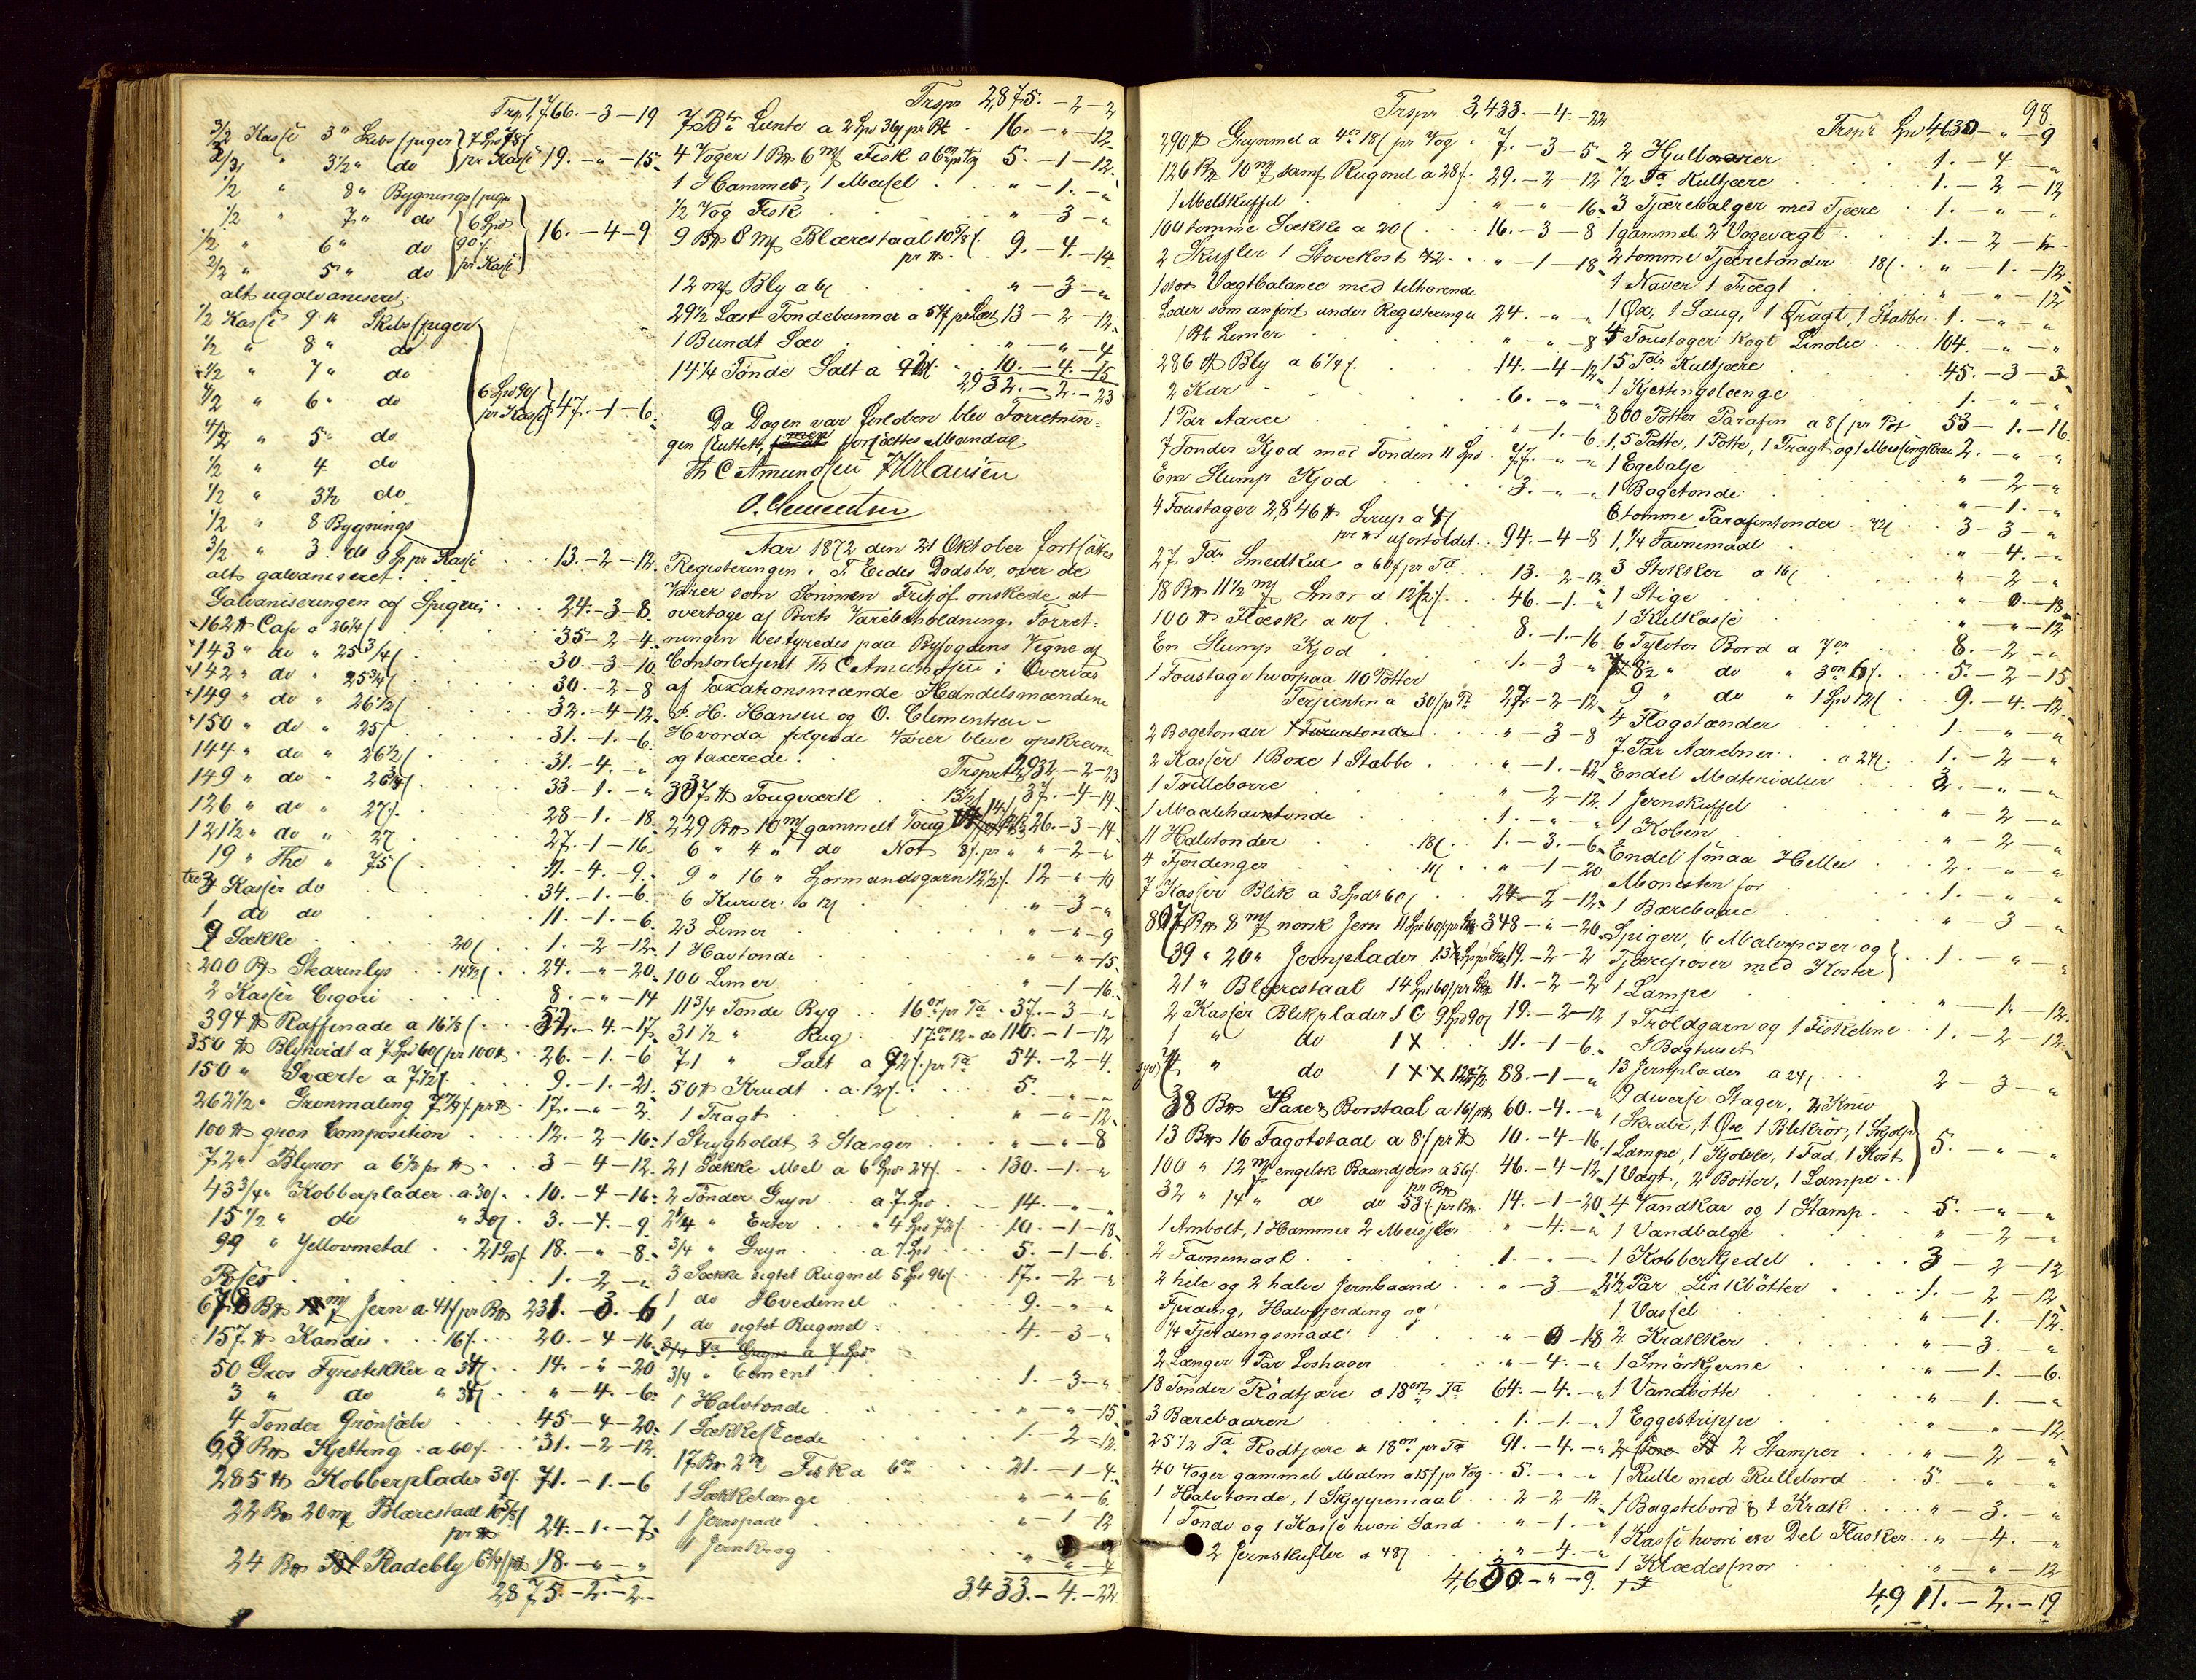 Trsp. 1,766.-3-19
3/2 Kasse 3" Skibsspiger 7 Spd 78 ſ
2/3 " 3½" do pr Kasse 19.-"-15
1/2 " 8" Bygningsspiger
1/2 " 7" do 6 Spd
1/2 " 6" do 90 ſ 16.-4-9
2/2 " 5" do pr Kasse
alt ugalvaniseret.
1/2 Kasse 9" Skibsspiger
1/2 " 8" do
1/2 " 7" do
1/2 " 6" do 6 Spd 90 ſ pr Kasse 47.-1-6
1/2 " 5" do
1/2 " 4 do
1/2 " 3½ do
1/2 " 8 Bygnings
3/2 " 3 do 9 Sp pr Kasse 13.-2-12
alt galvaniseret.
Galvaniseringen af Spigeri 24.-3-8
162 ℔ Caffe a 26¼ ſ 35-2-4
143 " do " 25¾ ſ 30.-3-10
142 " do " 25¾ ſ 30.-2-8
149 " do " 26½ ſ 32.-4-12
150 " do " 25 ſ 31.-1-6
144 " do " 26½ ſ 31.-4.-"
149 " do " 26¾ ſ 33-1.-"
126 " do " 27 ſ 28-1.-18
121½ " do " 27 27.-1-16
19 " The " 75 ſ 11.-4.-9
3 Kasser do 34.-1.-6
1 do do 11.-1.-6
9 Sække 20 ſ 1.-2-12
200 Pk Stearinlys 14½ ſ 24.-"-20
2 Kasser Cigori 8.-"-14
394 ℔ Raffinade a 16⅛ ſ 52.-4.-17
350 ℔ Blyhvidt a 7 Spd 60 ſ pr 100 ℔ 26.-1.-6
150 " Sværte a 7½ ſ 9.-1.-21
262½ " Grønmaling 7½ ſ pr ℔ 17.-"-2
100 ℔ grøn Composition 12.-2-16
72 " Blyrør a 6⅓ pr ℔ 3-4-12
43¾ " Kobberplader a 30 ſ 10.-4-16
15½ " do " 30 ſ 3.-4.-9
99 " Yellovmetal 21 ſ 18.-"-8
Poser 1.-2-"
678 B℔ Jern a 41 ſ pr B℔ 231.-3.-6
157 ℔ Kandis 16 ſ 20.-4-16
50 Gros Fyrstikker a 34 ſ 14.-"-20
3 " do " 34 ſ "-4.-6
4 Tønder Grønsæbe 45-4-20
63 B℔ Kjetting a 60 ſ 31.-2-12
285 ℔ Kobberplader 30 ſ 71.-1.-6
22 B℔ 20 m℔ Blærestaal 10⅝ ſ
pr ℔ 24.-1.-7
24 B℔ Radebly 6¼ ſ pr ℔ 18.-"-"
2,875.-2-2
Trspr 2,875.-2-2
7 Bt Lunte a 2 Spd 36 ſ pr Bt 16.-"-12
4 Voger 1 B℔ 6 m℔ Fisk a 6 on pr Vog 5.-1-12
1 Hammer, 1 Meisel "-1.-"
1/2 Vog Fisk "-3-"
9 B℔ 8 m℔ Blærestaal 10⅝ ſ
pr ℔ 9.-4.-14
12 m℔ Bly a 6 ſ "-3-"
29½ Læst Tøndebunner a 54 ſ pr Læst 13-2-12
1 Bundt Sæv "-"-4
14¼ Tønde Salt a 92 ſ 10.-4.-15
2932.-2.-23
Da Dagen var forløben blev Forretnin-
gen sluttet, men fortsættes Mandag
Th C Amundsen H Hansen
O. Clementsen
Aar 1872 den 21 Oktober fortsattes
Registeringen i T. Eides Dødsbo, over de
Varer som Sønnen Fritjof ønskede at
overtage af Boets Varebeholdning. Forret-
ningen bestyredes paa Byfogdens Vegne af
Contorbetjent Th C Amundsen i Overvær
af Taxationsmændene Handelsmændene
P. H. Hansen og O. Clementsen -
Hvorda følgende Varer bleve opskrevne
og taxerede.
Trsprt 2,932.-2-23
337 ℔ Tougværk 13½ ſ 37.-4-14
229 B℔ 10 m℔ gammelt Toug 26.-3-14
6 " 4 " do Not 8 ſ pr " "-2-"
9 " 16 " Lormandsgarn 12½ ſ 12-"-10
6 Kurver a 12 ſ "-3-"
23 Limer "-"-9
1 Havtønde "-"-15
100 Limer "-1-16
11¾ Tønde Byg 16 on pr Ta 37.-3-"
31½ " Rug 17 on 12 " do 110.-1-12
71 " Salt a 92 ſ pr Ta 54.-2-4
50 ℔ Krudt a 12 ſ 5.-"-"
1 Tragt "-"-12
1 Strygholdt, 2 Stænger "-"-8
21 Sække Mel a 6 Spd 24 ſ 130.-1.-"
2 Tønder Gryn a 7 Spd 14.-"-"
2¼ " Erter " 4 Spd 72 ſ 10.-1-18
¾ " Gryn a 7 Spd 5.-1-6
3 Sække sigtet Rugmel 5 Spd 96 ſ 17.-2-"
1 do Hvedemel 9.-"-"
1 do sigtet Rugmel 4.-3-"
3/4 Ta Gryn a 7 Spd
3/4 " Cement 1.-3-"
1 Halvtønde "-"-15
1 Sækkeslæde 1.-2-12
17 B℔ 2 m℔ Fisk a 6 on 21.-1-4
1 Sækkelænge "-"-6
1 Jernspade "-1-12
1 Jernkrog "-"-4
3433.-4.-22
98.
Trspr 3,433.-4.-22
290 ℔ Grynmel a 4 on 18 ſ pr Vog 7.-3-5
126 B℔ 10 m℔ samf Rugmel a 28 ſ 29.-2-12
1 Melskuffel "-"-16
100 tomme Sække a 20 ſ 16.-3-8
2 Skufler 1 Stovekost 42 "-1-18
1 stor Vægtbalance med tilhørende
Lodder som anført under Registeringen 24.-"-"
1 Bt Limer "-"-8
286 ℔ Bly a 6¼ ſ 14.-4-12
2 Kar 6.-"-"
1 Par Aarer "-1.-6
7 Tønder Kjød med Tønden 11 Spd 77.-"-"
En Slump Kjød 3.-"-"
4 Foustager 2,846 ℔ Sirup a 4 ſ
pr ℔ ufortoldet 94.-4-8
27 Tdr Smedkul a 60 ſ pr Ta 13.-2-12
18 B℔ 11½ m℔ Smør a 12½ ſ 46.-1.-"
100 ℔ Flæsk a 10 ſ 8.-1.-16
En Slump Kjød 1.-3-"
1 Foustage hvorpaa 110 Potter
Terpentin a 30 ſ pr Pt 27.-2-12
2 Bøgetønder "-3-8
2 Kasser 1 Boxe 1 Stabbe "-1.-12
1 Trillebørre "-2-12
1 Maalehavtønde 1.-"-"
11 Halvtønder 18 ſ 1.-3.-6
4 Fjerdinger 11 ſ "-1-20
7 Kasser Blik a 3 Spdr 60 ſ 24-2-12
867 B℔ 8 m℔ norsk Jern 11 Spd 60 ſ pr Sk℔ 348-"-20
39 " 20 " Jernplader 13½ Sp pr Sk℔ 19.-2-2
21 " Blærestaal 14 Spd 60 ſ pr Sk℔ 11.-2-2
2 Kasser Blikplader 1 C 9 Spd 90 ſ 19.-2-12
1 " do 1 X 11.-1-6
7 " do 1 X X 88.-1-"
38 B℔ Saxe & Borstaal a 16 ſ pr ℔ 60.-4.-"
13 B℔ 16 Fagotstaal a 8 ſ pr ℔ 10.-4-16
100 " 12 m℔ engelsk Baandjern a 56 ſ
pr B℔ 46.-4-12
32 " 14 " do do 53 ſ pr B℔ 14.-1-20
1 Ambolt, 1 Hammer 2 Meisler "-4.-"
2 Favnemaal 1.-"-"
2 hele og 2 halve Jernbaand "-3-"
Fjerding, Halvfjerding og
¼ Fjerdingsmaal "-0-18
2 Længer 1 Par Loshager "-4.-"
18 Tønder Rødtjære a 18 on Ta 64.-4.-"
3 Bærebaaren 1.-1.-"
25½ Ta Rødtjære a 18 on pr Ta 91.-4.-"
40 Voger gammel Malm a 15 ſ pr Vog 5.-"-"
1 Halvtønde, 1 Skjeppemaal 2-2-12
1 Tønde og 1 Kasse hvori Sand "-1.-"
2 Jernskufler a 48 ſ "-4.-"
4,630.-"-9
Trspr Spd 4,630-"-9
2 Hjulbører 1.-4-"
1/2 Ta Kultjære 1.-2-12
3 Tjærebalger med Tjære 1.-"-"
1 gammel 2 Vogevægt 1.-2-"
2 tomme Tjæretønder 18 ſ "-1.-12
1 Naver 1 Tragt "-"-12
1 Øx, 1 Saug, 1 Tragt, 1 Stabbe 1.-"-"
4 Foustager kogt Linolie 104.-"-"
15 Tdr Kultjære 45.-3-3
1 Kjettingslænge 1.-"-"
800 Potter Parafin a 8 ſ pr Pot 53-1.-16
1,5 Potte, 1 Potte, 1 Tragt og 1 Messingkran 2.-"-"
1 Egebalje "-2-"
1 Bøgetønde "-1.-"
6 tomme Parafintønder 72 ſ 3-3-"
1,¼ Favnemaal "-4.-"
3 Stokker a 16 ſ "-2-"
1 Stige "-0.-18
1 Kulkasse "-"-12
6 Tylvter Bord a 7 on 8.-2-"
8½ " do " 3 on 6 ſ 5.-2-15
9 " do " 1 Spd 12 ſ 9.-4.-12
4 Flagstænder 1.-"-"
7 Par Aarebner a 24 ſ 1.-2-"
Endel Materialier 3.-"-"
1 Jernskuffel "-2-"
1 Koben "-2-"
Endel smaa Heller 2.-"-"
Monesten for 1.-"-"
1 Bærebaare "-3-"
Spiger, 6 Malerposer og
Tjæreposer med Koster 1.-"-"
1 Lampe "-1.-12
1 Troldgarn og 1 Fiskeline 1.-2-12
I Baghuset
13 Jernplader a 24 ſ 2-3-"
9 diverse Stager, 2 Kniv
1 Skrabe, 1 Øxe 1 Blikrør, 1 Skjolp
1 Lampe, 1 Kjedle, 1 Fad, 1 Kost 5.-"-"
1 Vægt, 2 Bøtter, 1 Lampe
4 Vandkar og 1 Stamp 5.-"-"
1 Vandbalge "-2-"
1 Kobberkjedel 3-2-12
2½ Par Sinkbøtter 1.-2-12
1 Vassel "-1.-12
2 Krakker "-3.-"
1 Smørkjerne "-1.-6
1 Vandbøtte "-1.-"
1 Eggestrippe "-"-12
2 2 Stamper "-2-"
1 Rulle med Rullebord 5.-"-"
1 Bagstebord & 1 Krak "-3.-"
1 Kasse hvori en Del Flasker "-4.-"
1 Klædessnor "-"-12
4,911.-2.-19